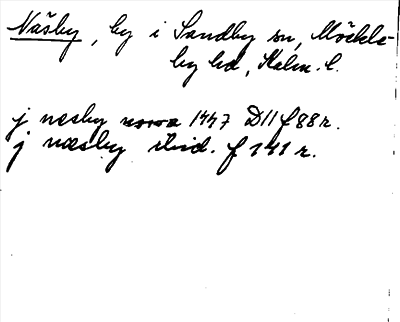 Näsby, by i Sandby sn, Möckle-
by hd, Kalm. l.
j nesby norra 1447 D11 f 88 r.
j næsby ibid. f 141 r.